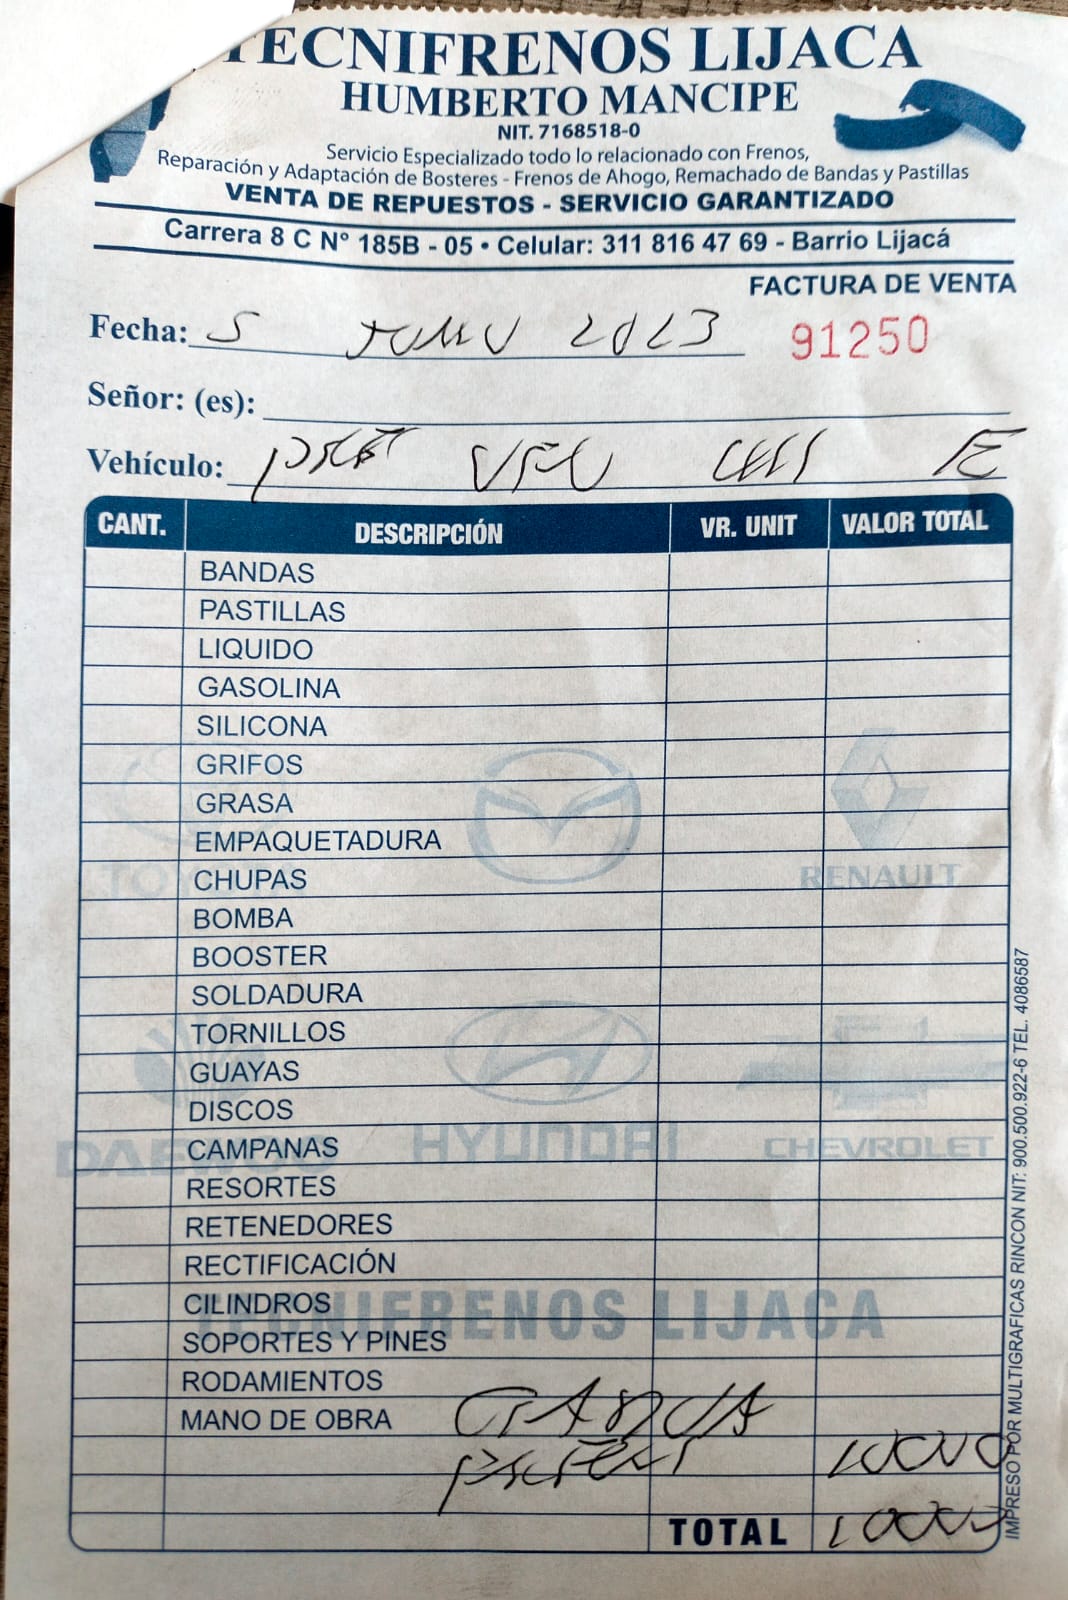 TECNIFRENOS LIJACA
HUMBERTO MANCIPE
NIT. 7168518-0
Servicio Especializado todo lo relacionado con Frenos,
Reparación y Adaptación de Bosteres - Frenos de Ahogo, Remachado de Bandas y Pastillas
VENTA DE REPUESTOS - SERVICIO GARANTIZADO
Carrera 8 C N° 185B - 05 • Celular: 311 816 47 69 - Barrio Lijacá
FACTURA DE VENTA
Fecha: 5 2023 91250
Señor: (es):
Vehículo:
CANT. DESCRIPCIÓN VR. UNIT VALOR TOTAL
BANDAS
PASTILLAS
LIQUIDO
GASOLINA
SILICONA
GRIFOS
GRASA
EMPAQUETADURA
CHUPAS
BOMBA
BOOSTER
SOLDADURA
TORNILLOS
GUAYAS
DISCOS
CAMPANAS
RESORTES
RETENEDORES
RECTIFICACIÓN
CILINDROS
SOPORTES Y PINES
RODAMIENTOS
MANO DE OBRA
10000
TOTAL 10000
RENAULT
DAEWOO HYUNDAI CHEVROLET
TECNIFRENOS LIJACA
IMPRESO POR MULTIGRAFICAS RINCON NIT: 900.500.922-6 TEL. 4086587